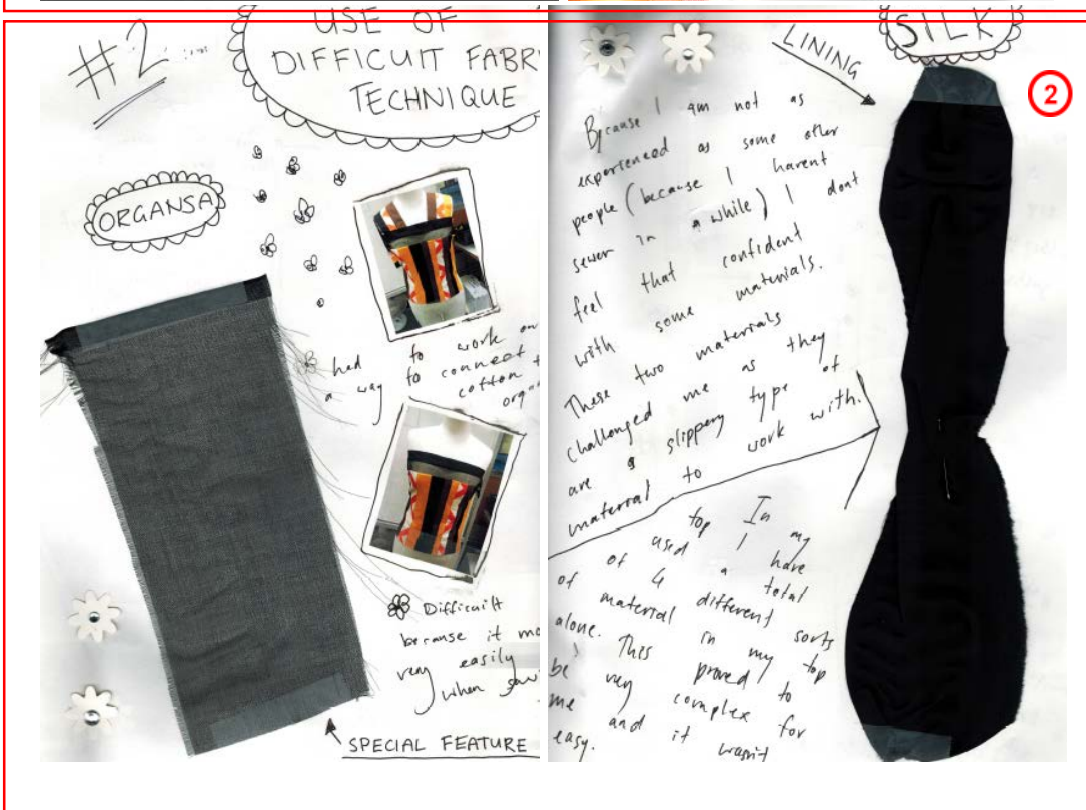 #2
USE OF
DIFFICUIT FABR
TECHNIQUE
ORGANSA
had to work on
a way to connect
cotton +
orga
Difficuilt
because it mo
very easily
when sewi
SPECIAL FEATURE
SILK
LINING
2
Because I am not as
experienced as some other
people (because I havent
sewer in a while) I dont
feel that confident
with some materials.
These two materials
challenged me as they
are a slippery type of
material to work with.
top In my
of used I have
of 4 a total
of material different sorts
alone. This in my top
be very proved to
me complex for
easy. and it wasnt